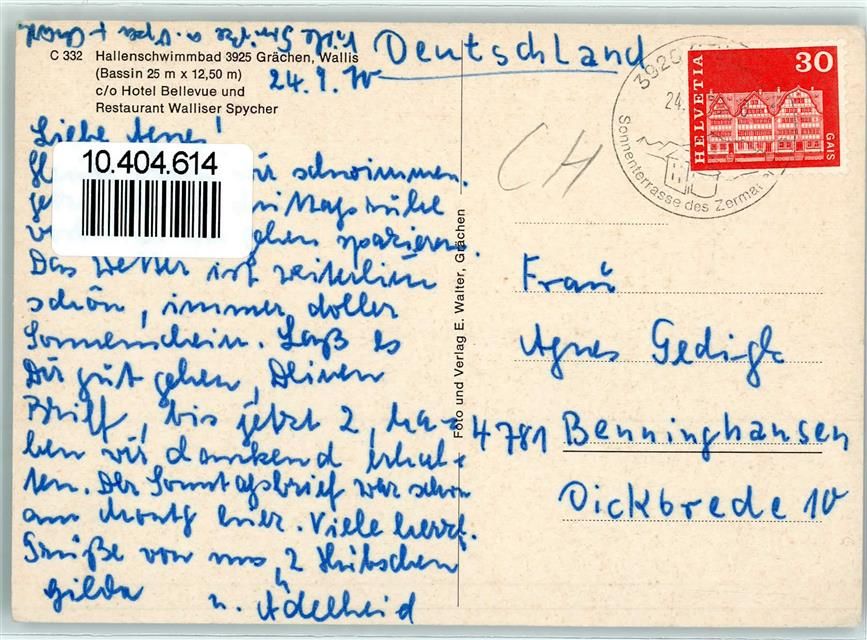 Deutschland
C 332 Hallenschwimmbad 3925 Grächen, Wallis
(Bassin 25 m x 12,50 m)
c/o Hotel Bellevue und
Restaurant Walliser Spycher
24.9.70
Liebe Agnes!
10.404.614
wir schwimmen.
gehen spazieren.
Das Wetter ist weiterhin
schön, immer doller
Sonnenschein. Laß es
Dir gut gehen, Deinen
Brief, bis jetzt 2, ha-
ben wir dankend erhal-
ten. Der Sonntagsbrief war schon
am Montg hier. Viele herzl.
Grüße von uns "2 Hübschen"
Gilda
u. Adelheid
Foto und Verlag E. Walter, Grächen
CH
3925
24.
Sonnenterrasse des Zermat
HELVETIA
30
GAIS
Frau
Agnes Gedigk
4781 Benninghausen
Dickbrede 10